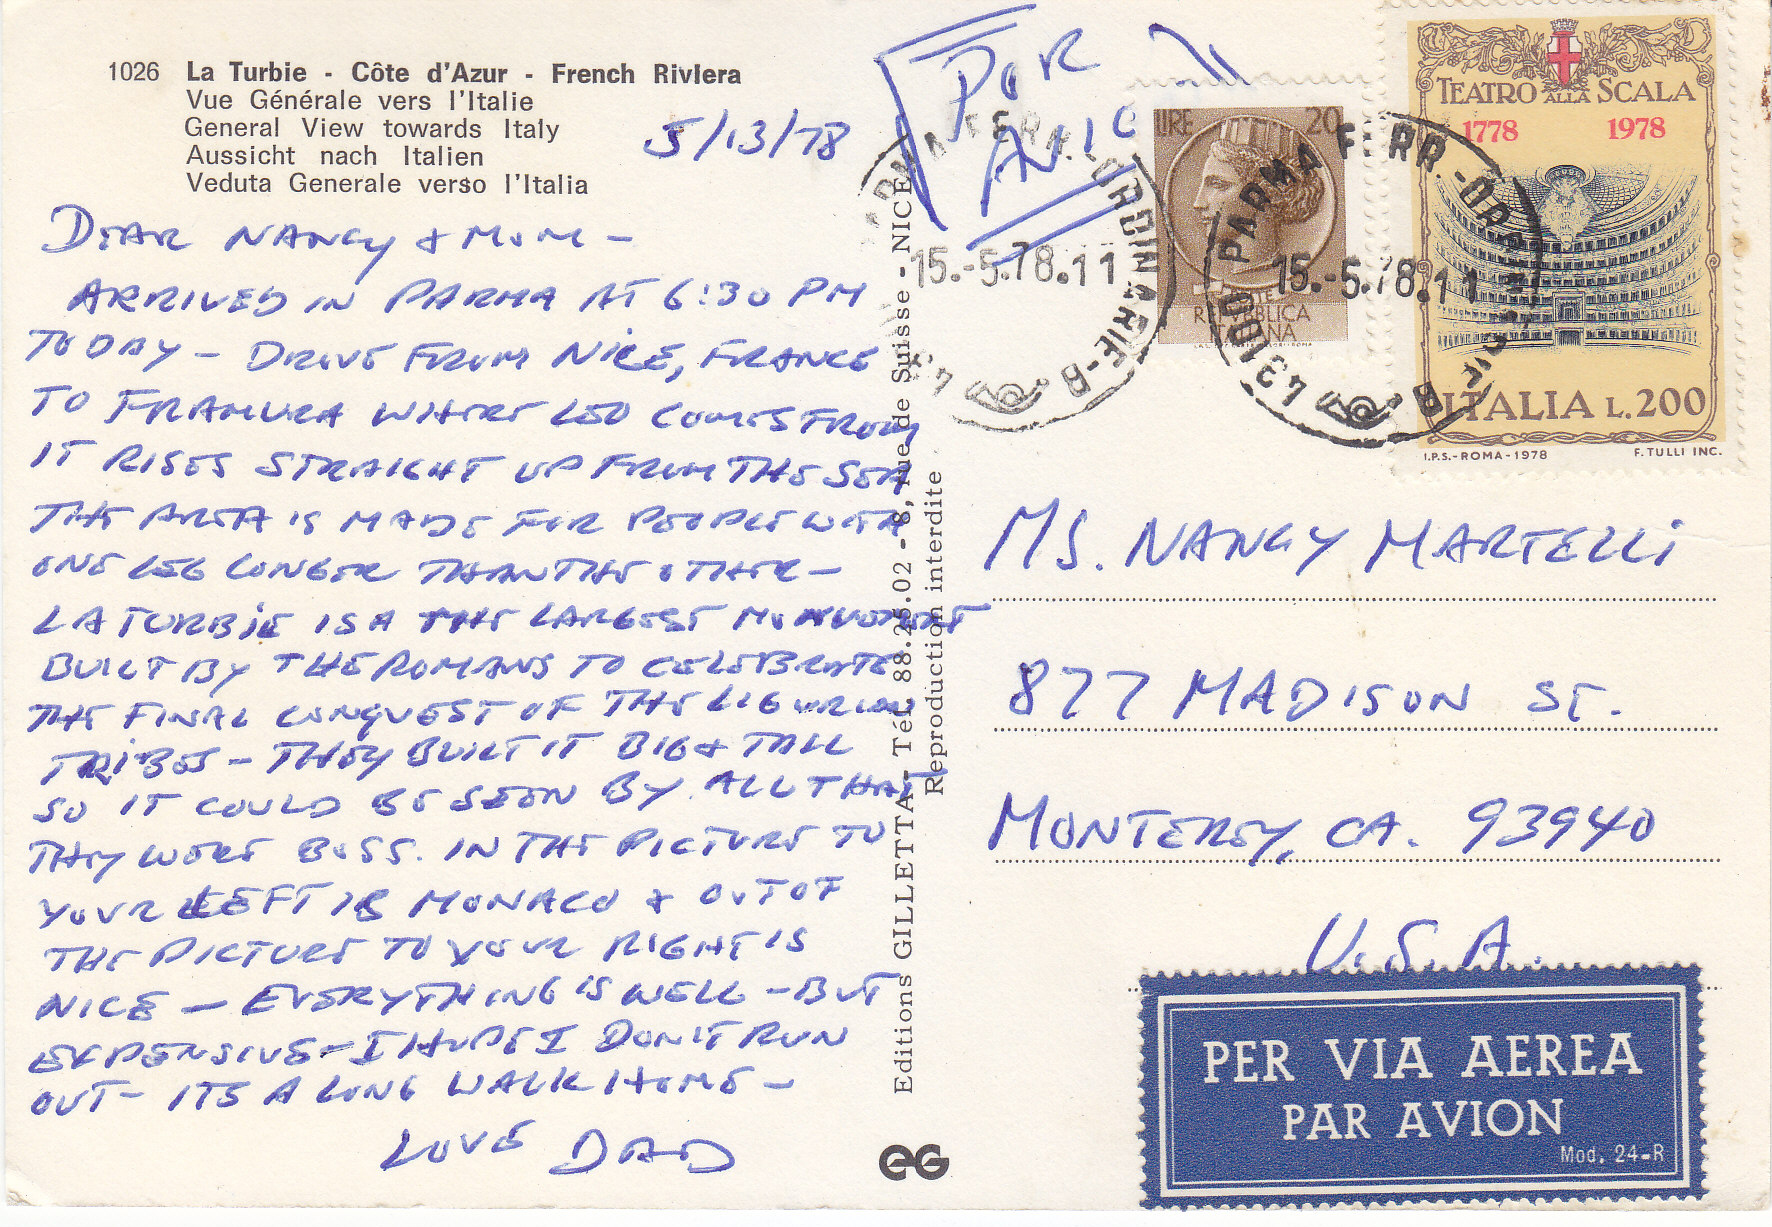 1026 La Turbie - Côte d'Azur - French Riviera
Vue Générale vers l'Italie
General View towards Italy
Aussicht nach Italien
Veduta Generale verso l'Italia
5/13/78
DEAR NANCY & MOM -
ARRIVED IN PARMA AT 6:30 PM
TODAY - DROVE FROM NICE, FRANCE
TO FRAMURA WHERE LEO COMES FROM
IT RISES STRAIGHT UP FROM THE SEA
THE AREA IS MADE FOR PEOPLE WITH
ONE LEG LONGER THAN THE OTHER -
LA TURBIE IS A THE LARGEST MONUMENT
BUILT BY THE ROMANS TO CELEBRATE
THE FINAL CONQUEST OF THE LIGURIAN
TRIBES - THEY BUILT IT BIG & TALL
SO IT COULD BE SEEN BY ALL THAT
THEY WERE BOSS. IN THE PICTURE TO
YOUR LEFT IS MONACO & OUT OF
THE PICTURE TO YOUR RIGHT IS
NICE - EVERYTHING IS WELL - BUT
EXPENSIVE - I HOPE I DON'T RUN
OUT - ITS A LONG WALK HOME -
LOVE DAD
Editions GILLETTA - Tél. 88.25.02 - 8, rue de Suisse - NICE
Reproduction interdite
EG
POR
AVIO
PARMA FERR.-ORDINARIE-B
15.-5.78.11
43100
LIRE 20
POSTE
REPVBBLICA
ITALIANA
PARMA FERR.-ORDINARIE-B
15.-5.78.11
43100
TEATRO ALLA SCALA
1778 1978
ITALIA L.200
I.P.S.-ROMA-1978 F. TULLI INC.
MS. NANCY MARTELLI
877 MADISON ST.
MONTEREY, CA. 93940
U.S.A.
PER VIA AEREA
PAR AVION
Mod. 24-R